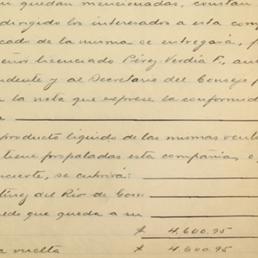 quedan mencionadas, constan
dirigido los interesados a esta com
cado de la misma se entregará,
Licenciado Pérez Verdía F., au
dente y al Secretario del Consejo
la nota que exprese la conformida
producto líquido de las mismas vent
tiene propaladas esta compañía
se cubrirá:
del Río de
que queda a su
$ 4.600.95
vuelta $ 4.600.95